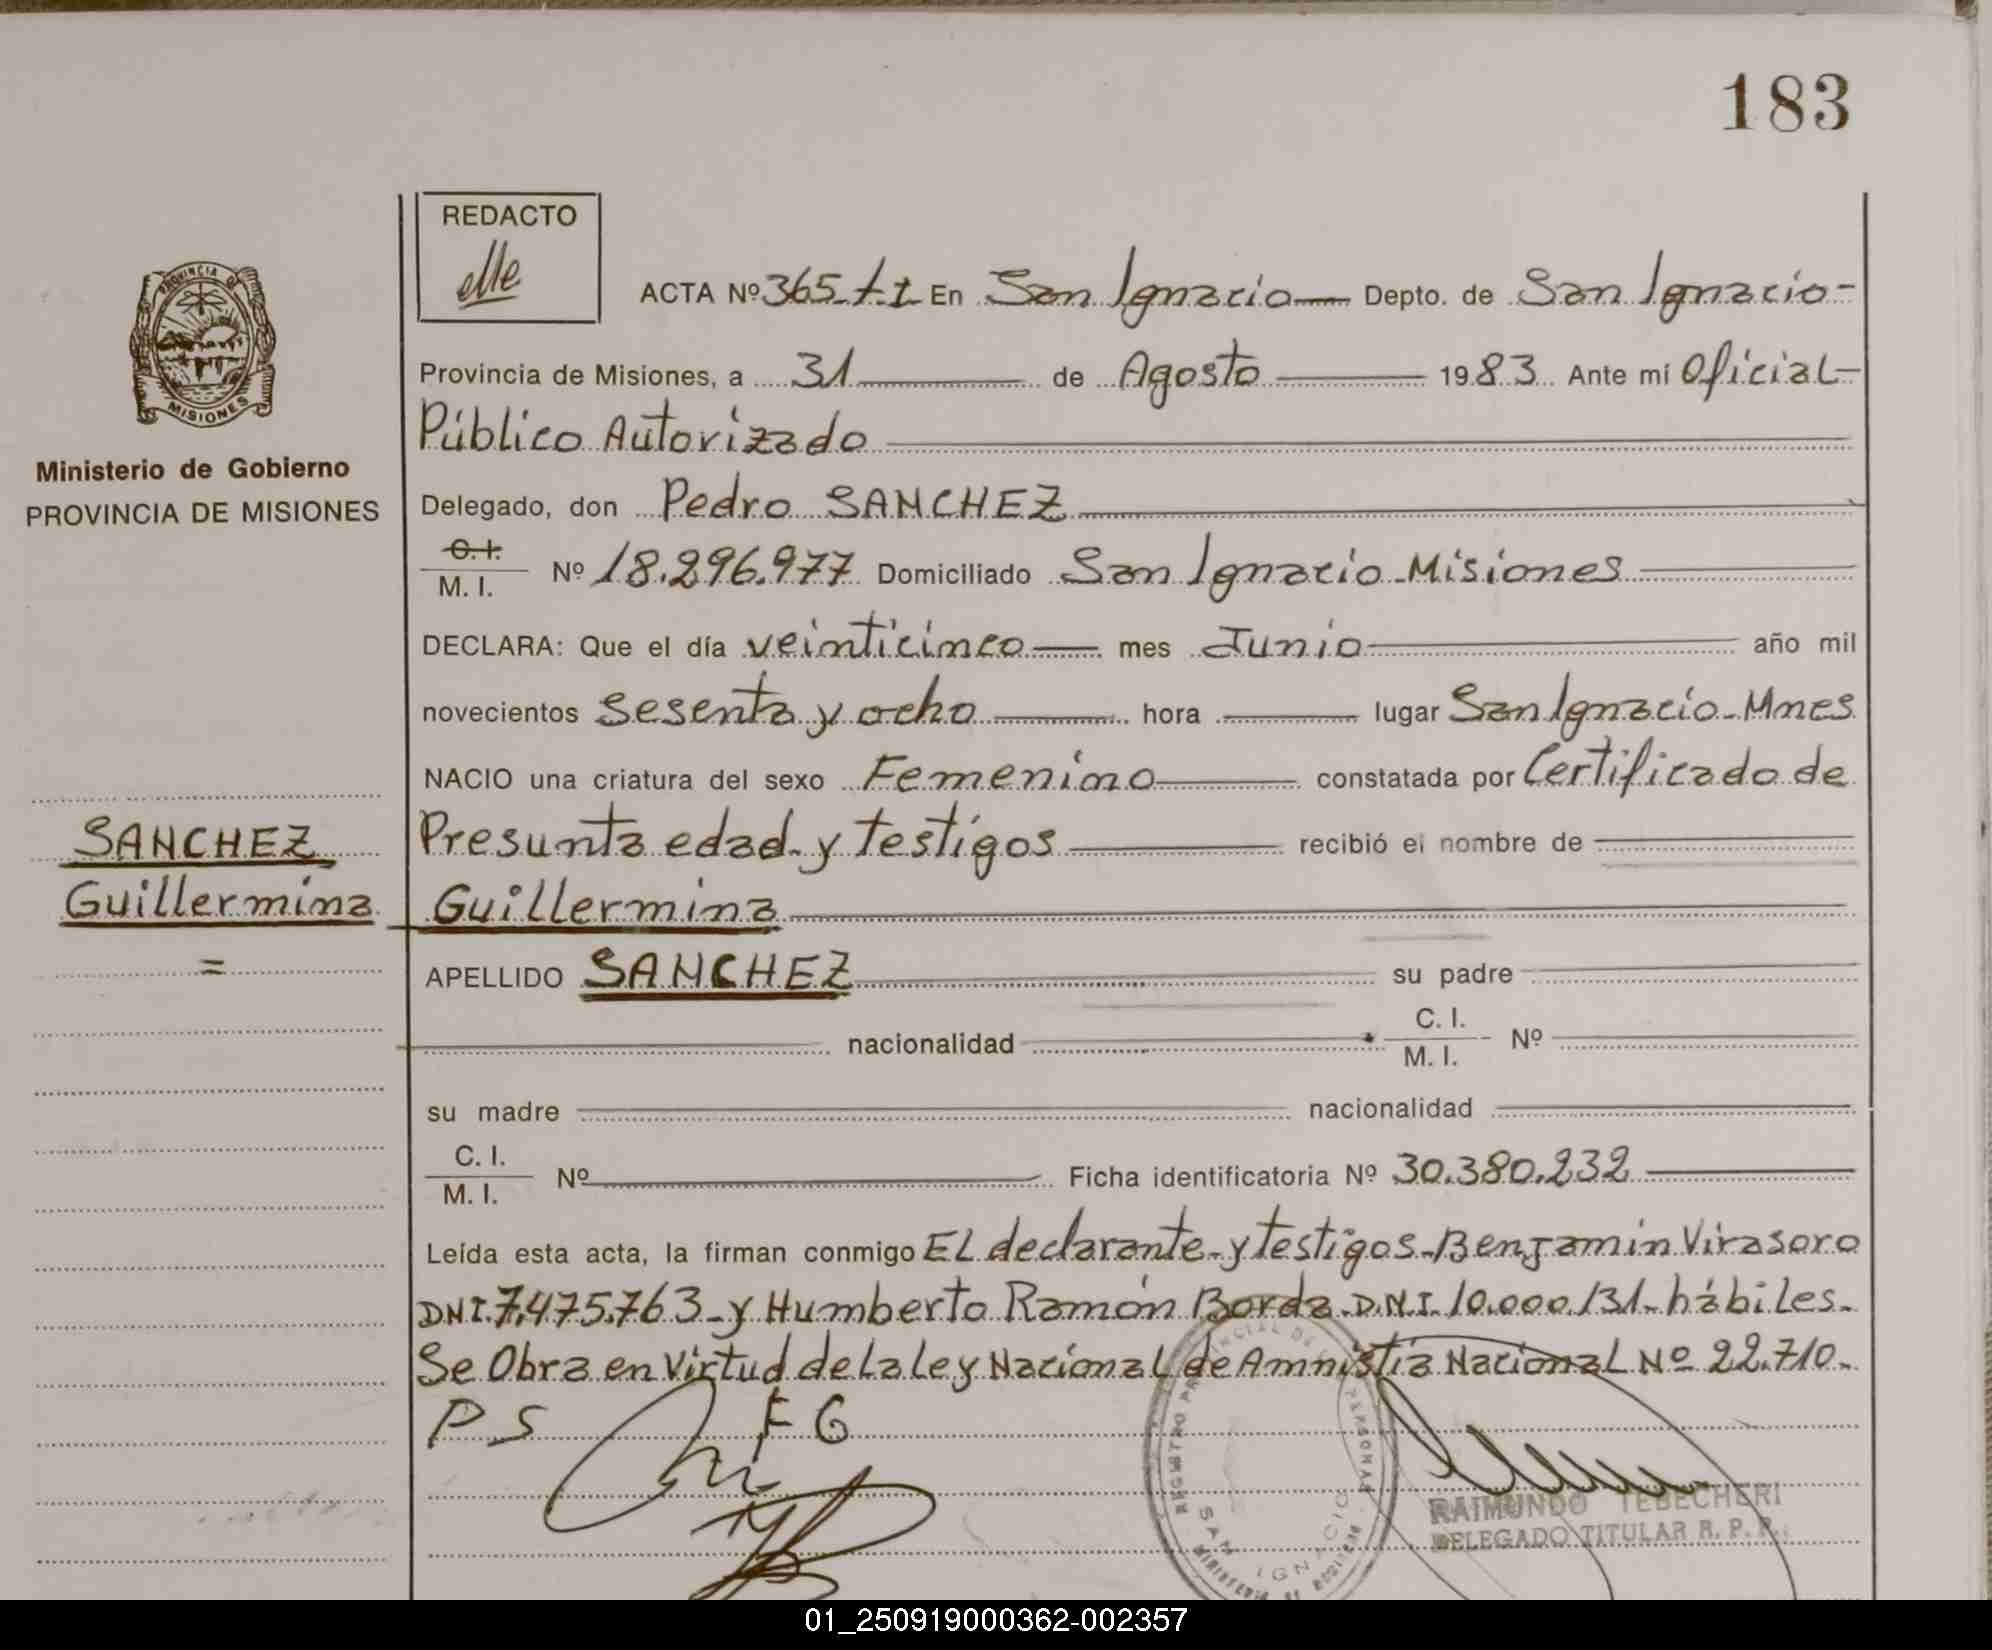 183
REDACTO
ACTA Nº 365 t.1 En San Ignacio Depto. de San Ignacio-
Provincia de Misiones, a 31 de Agosto 1983 Ante mí Oficial-
Público Autorizado
Delegado, don Pedro SANCHEZ
C. I.
M. I. Nº 18.296.977 Domiciliado San Ignacio-Misiones
DECLARA: Que el día veinticinco mes Junio año mil
novecientos sesenta y ocho hora lugar San Ignacio-Mnes
NACIO una criatura del sexo Femenino constatada por Certificado de
Presunta edad y testigos recibió el nombre de
Guillermina
APELLIDO SANCHEZ su padre
nacionalidad C. I. M. I. Nº
su madre nacionalidad
C. I.
M. I. Nº Ficha identificatoria Nº 30.380.232
Leída esta acta, la firman conmigo EL declarante-y testigos-Benjamin Virasoro
DNI.7.475.763-y Humberto Ramón Borda.D.N.I. 10.000.131-hábiles.
Se Obra en Virtud de La ley Nacional de Amnistía Nacional Nº 22.710-
P S F G
PROVINCIA DE
MISIONES
Ministerio de Gobierno
PROVINCIA DE MISIONES
SANCHEZ
Guillermina
=
REGISTRO PROVINCIAL DE PERSONAS
SAN IGNACIO
MINISTERIO DE GOBIERNO
RAIMUNDO TEBECHERI
DELEGADO TITULAR R. P. P.
01_250919000362-002357